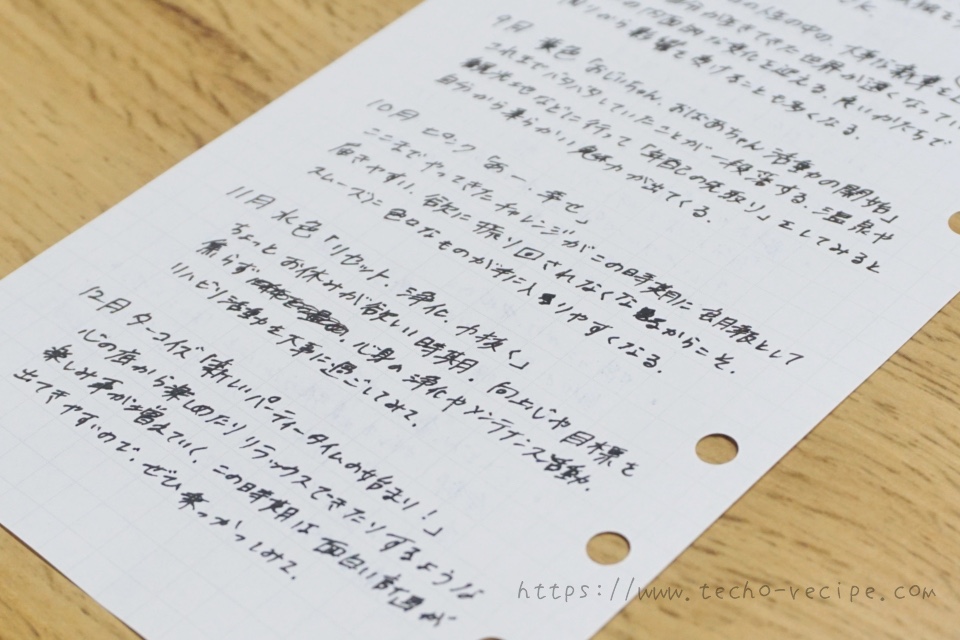 の人生の中の、大事な
世界が濃くなってい
を迎える。良いかたちで
影響を受けることも多くなる。
9月 黄色「おじいちゃん、おばあちゃん活動の開始」
これまでバタバタしていたことが一段落する。温泉や
観光地などに行って「年明との先取り」をしてみると
自分から柔らかい魅力が出てくる。
10月 ピンク「あー、幸せ」
ここまでやってきたチャレンジがこの時期に良報として
届きやすい。欲に振り回されなくなるからこそ、
スムーズに色々なものが手に入りやすくなる。
11月 水色「リセット、浄化、力抜く」
ちょっとお休みが欲しい時期。向上心や目標を
焦らず、心身の浄化やメンテナンス活動。
リハビリ活動を大事に過ごしてみて。
12月 ターコイズ「新しいパーティータイムの始まり!」
心の底から楽しめたりリラックスできたりするような
楽しみ事が増えていく。この時期は面白い計画が
出てきやすいので、ぜひ乗っかってみて。
https://www.techo-recipe.com/